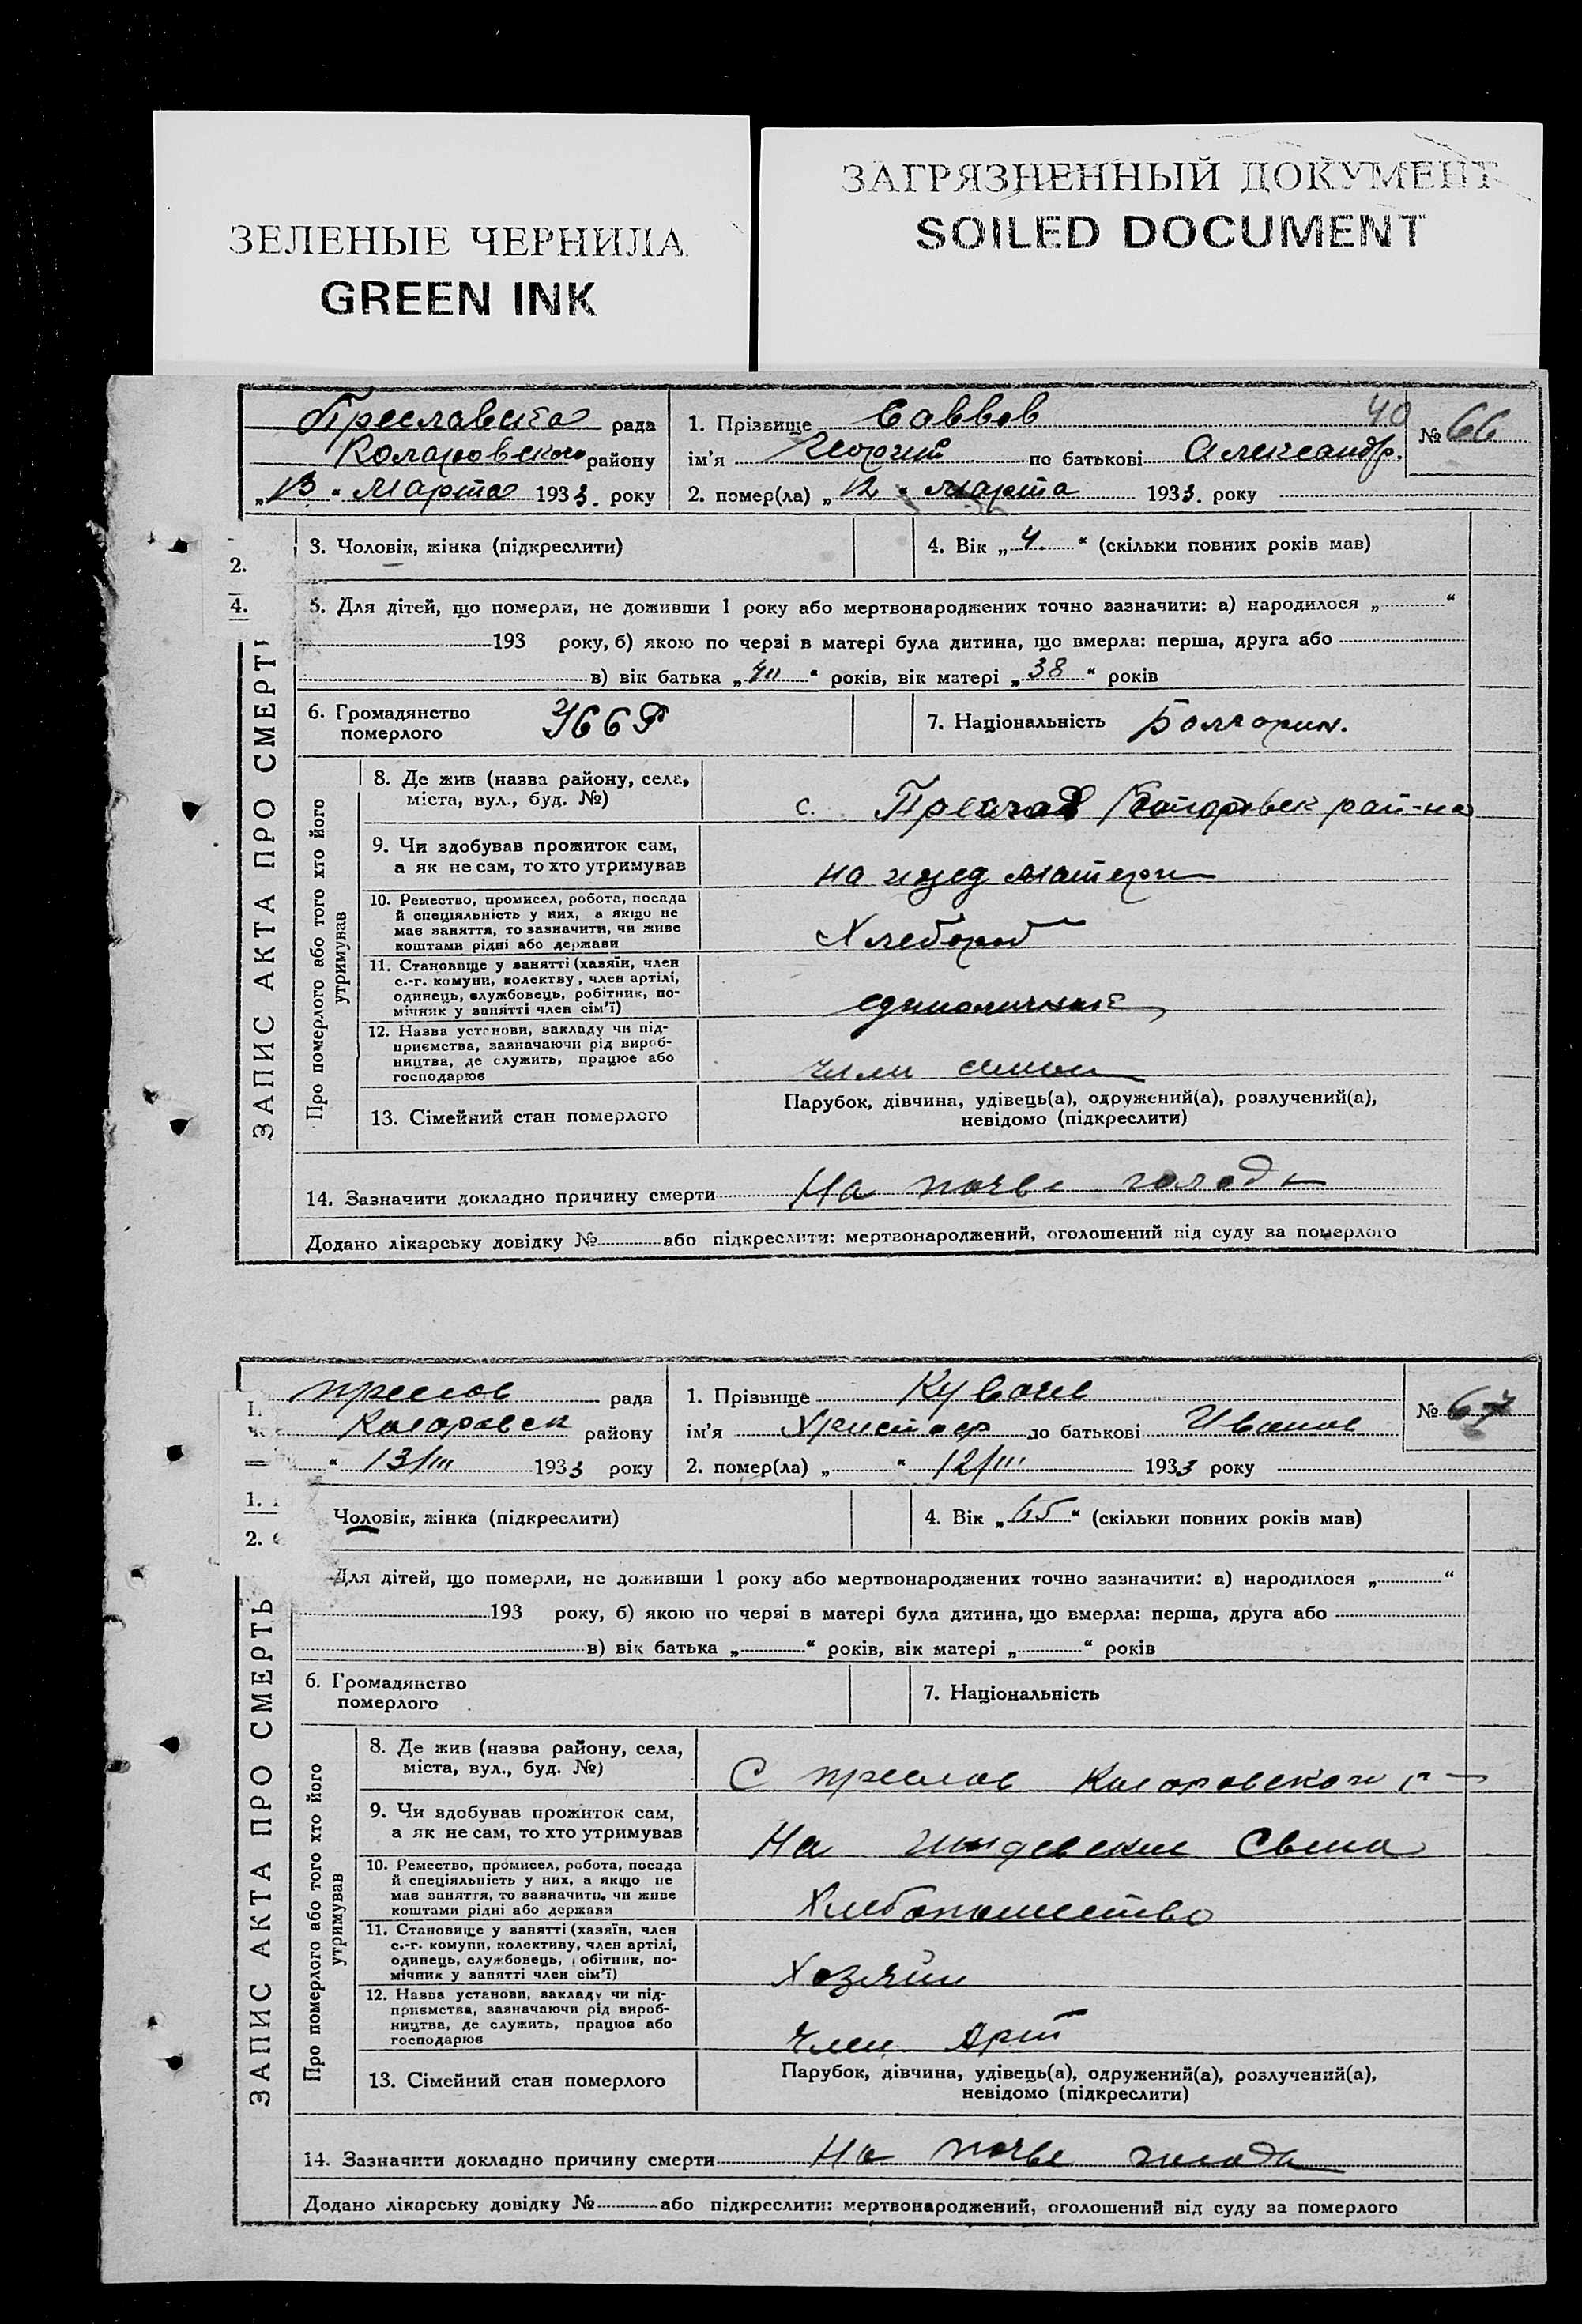 ЗЕЛЕНЫЕ ЧЕРНИЛА
GREEN INK
ЗАГРЯЗНЕННЫЙ ДОКУМЕНТ
SOILED DOCUMENT
40
Преславска рада 1. Прізвище Саввов № 66
Коларовского району ім'я Георгий по батькові Александр.
„13“ Марта 1933. року 2. помер(ла) „12“ Марта 1933. року
2.
4.
ЗАПИС АКТА ПРО СМЕРТЬ
3. Чоловік, жінка (підкреслити) 4. Вік „4.“ (скільки повних років мав)
5. Для дітей, що померли, не доживши 1 року або мертвонароджених точно зазначити: а) народилося „ “
193 року, б) якою по черзі в матері була дитина, що вмерла: перша, друга або
в) вік батька „40“ років, вік матері „38“ років
6. Громадянство померлого 7. Національність Болгарин.
Про померлого або того хто його утримував
8. Де жив (назва району, села, міста, вул., буд. №) с. Преслав
9. Чи здобував прожиток сам, а як не сам, то хто утримував на ижд матери
10. Ремество, промисел, робота, посада й спеціяльність у них, а якщо не має заняття, то зазначити, чи живе коштами рідні або держави Хлебороб
11. Становище у занятті (хазяїн, член с.-г. комуни, колективу, член артілі, одинець, службовець, робітник, помічник у занятті член сім'ї) единоличник
12. Назва установи, закладу чи підприємства, зазначаючи рід виробництва, де служить, працює або господарює член семьи
13. Сімейний стан померлого Парубок, дівчина, удівець(а), одружений(а), розлучений(а), невідомо (підкреслити)
14. Зазначити докладно причину смерти На почве голода
Додано лікарську довідку № або підкреслити: мертвонароджений, оголошений від суду за померлого
преслов рада 1. Прізвище Кувачев № 67
Коларовск району ім'я Христофор по батькові Иванов
“ 13/III 1933 року 2. помер(ла) „ “ 12/III 1933 року
1.
2.
ЗАПИС АКТА ПРО СМЕРТЬ
Чоловік, жінка (підкреслити) 4. Вік „65“ (скільки повних років мав)
Для дітей, що померли, не доживши 1 року або мертвонароджених точно зазначити: а) народилося „ “
193 року, б) якою по черзі в матері була дитина, що вмерла: перша, друга або
в) вік батька „ “ років, вік матері „ “ років
6. Громадянство померлого 7. Національність
Про померлого або того хто його утримував
8. Де жив (назва району, села, міста, вул., буд. №) С преслов Коларовского р-
9. Чи здобував прожиток сам, а як не сам, то хто утримував На иждевении сына
10. Ремество, промисел, робота, посада й спеціяльність у них, а якщо не має заняття, то зазначити, чи живе коштами рідні або держави Хлебопашество
11. Становище у занятті (хазяїн, член с.-г. комуни, колективу, член артілі, одинець, службовець, робітник, помічник у занятті член сім'ї) Хозяин
12. Назва установи, закладу чи підприємства, зазначаючи рід виробництва, де служить, працює або господарює Член Арт
13. Сімейний стан померлого Парубок, дівчина, удівець(а), одружений(а), розлучений(а), невідомо (підкреслити)
14. Зазначити докладно причину смерти На почве голода
Додано лікарську довідку № або підкреслити: мертвонароджений, оголошений від суду за померлого